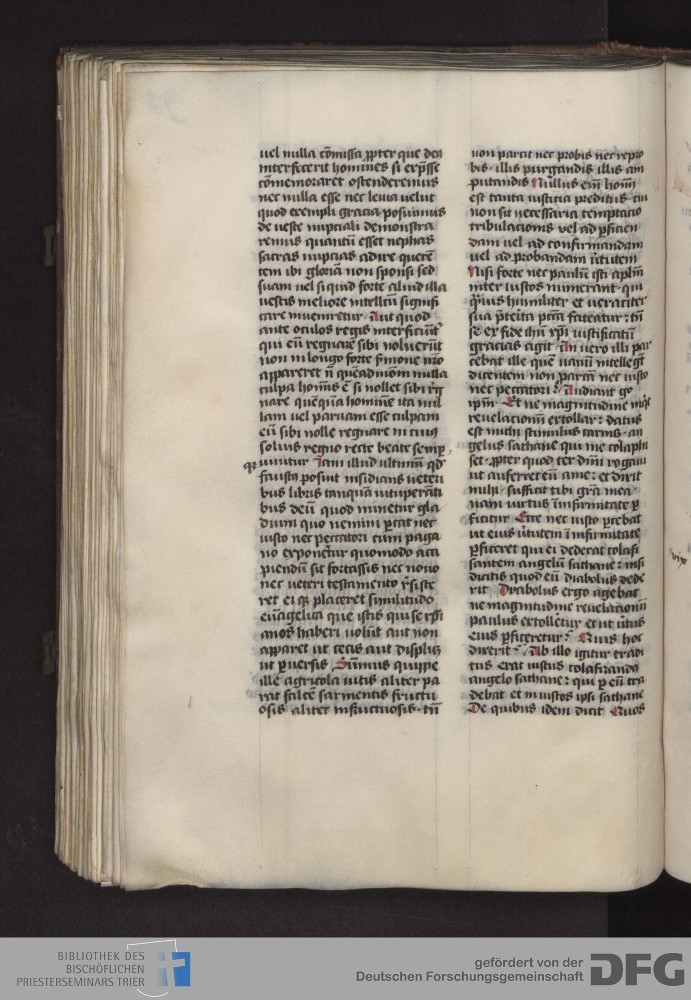 uel nulla cōmissa ꝓpter que deꝰ
interfecerit homines si expͥsse
cōmemoraret ostenderemus
nec nulla esse nec leuia uelut
quod exempli gracia posuimus
de ueste nupciali demonstra
remus quantū esset nephas
sacras nupcias adire querē
tem ibi gloriā non sponsi sed
suam uel si quid forte aliud illa
uestis meliore intellcū signifi
care inueniretur. Aut quod
ante oculos regis interficiūt᷑
qui eū regnare sibi noluerūt
non in longo forte ẜmone nr̄o
appareret n̄ quēadmodū nulla
culpa homīs ē si nollet sibi r̄g
nare quēquā hominē ita nul
lam uel paruam esse culpam
eū sibi nolle regnare in cuiꝰ
solius regno recte beate semꝑ
qꝫ uiuitur Iam illud ultimū qd̓
faustꝰ posuit insidians ueteri
bus libris tanquā uitupeāti
bus deū quod minetur gla
dium quo nemini ꝑcat nec
iusto nec peccatori cum paga
no exponet᷑ur quomodo acci
piendū sit fortassis nec nouo
nec ueteri testamento r̄siste
ret ei qꝫ placeret similitudo
euāgelica que istis qui se xp̄i
anos haberi uolūt aut non
apparet ut cecis aut displiꝫ
ut ꝑuersis Sūmus quippe
ille agricola uitis aliter pa
rat falcē sarmentis fructu
osis aliter infructuosis. tn̄
non parcit nec probis nec repro
bis. illis purgandis illis am
putandis Nullus em̄ homī
est tanta iusticia preditus. cui
non sit necessaria temptacio
tribulacionis vel ad ꝑficien
dam uel ad confirmandam
uel ad probandam ūtutem
Nisi forte nec paulū isti aplm̄
inter iustos numerant. qui
qͣuis humiliter et ueraciter
sua p̄terita pctā fateatur: tn̄
se ex fide ihū xp̄i iustificatū
gracias agit. An uero illi par
cebat ille quē uani intellegūt
dicentem non parcā nec iusto
nec peccatori: Audiant go
ipm̄. Et ne magnitudine inq̄t
reuelacionū extollar: datus
est michi stimulus carnis. an
gelus sathane qui me colaphi
set. ꝓpter quod ter dm̄ rogaui
ut auferret eū a me: et dixit
michi. sufficit tibi grā mea.
nam uirtus ī infirmitate ꝑ
ficitur Ecce nec iusto ꝑcebat
ut eius ūtutem ī infirmitate
ꝑficeret qui ei dederat colafi
santem angelū sathane: nisi
dicatis quod eū diabolus dede
rit Dyabolus ergo agebat
ne magnitudine reuelacionū
paulus extolletur et ut ūtus
eius ꝑficeretur. Quis hoc
dixerit: Ab illo igitur tradi
tus erat iustus colafizandꝰ
angelo sathane: qui ꝑ eū tra
debat et iniustos ipsi sathane
De quibus idem dicit Quos
BIBLIOTHEK DES
BISCHÖFLICHEN
PRIESTERSEMINARS TRIER
gefördert von der
Deutschen Forschungsgemeinschaft
DFG